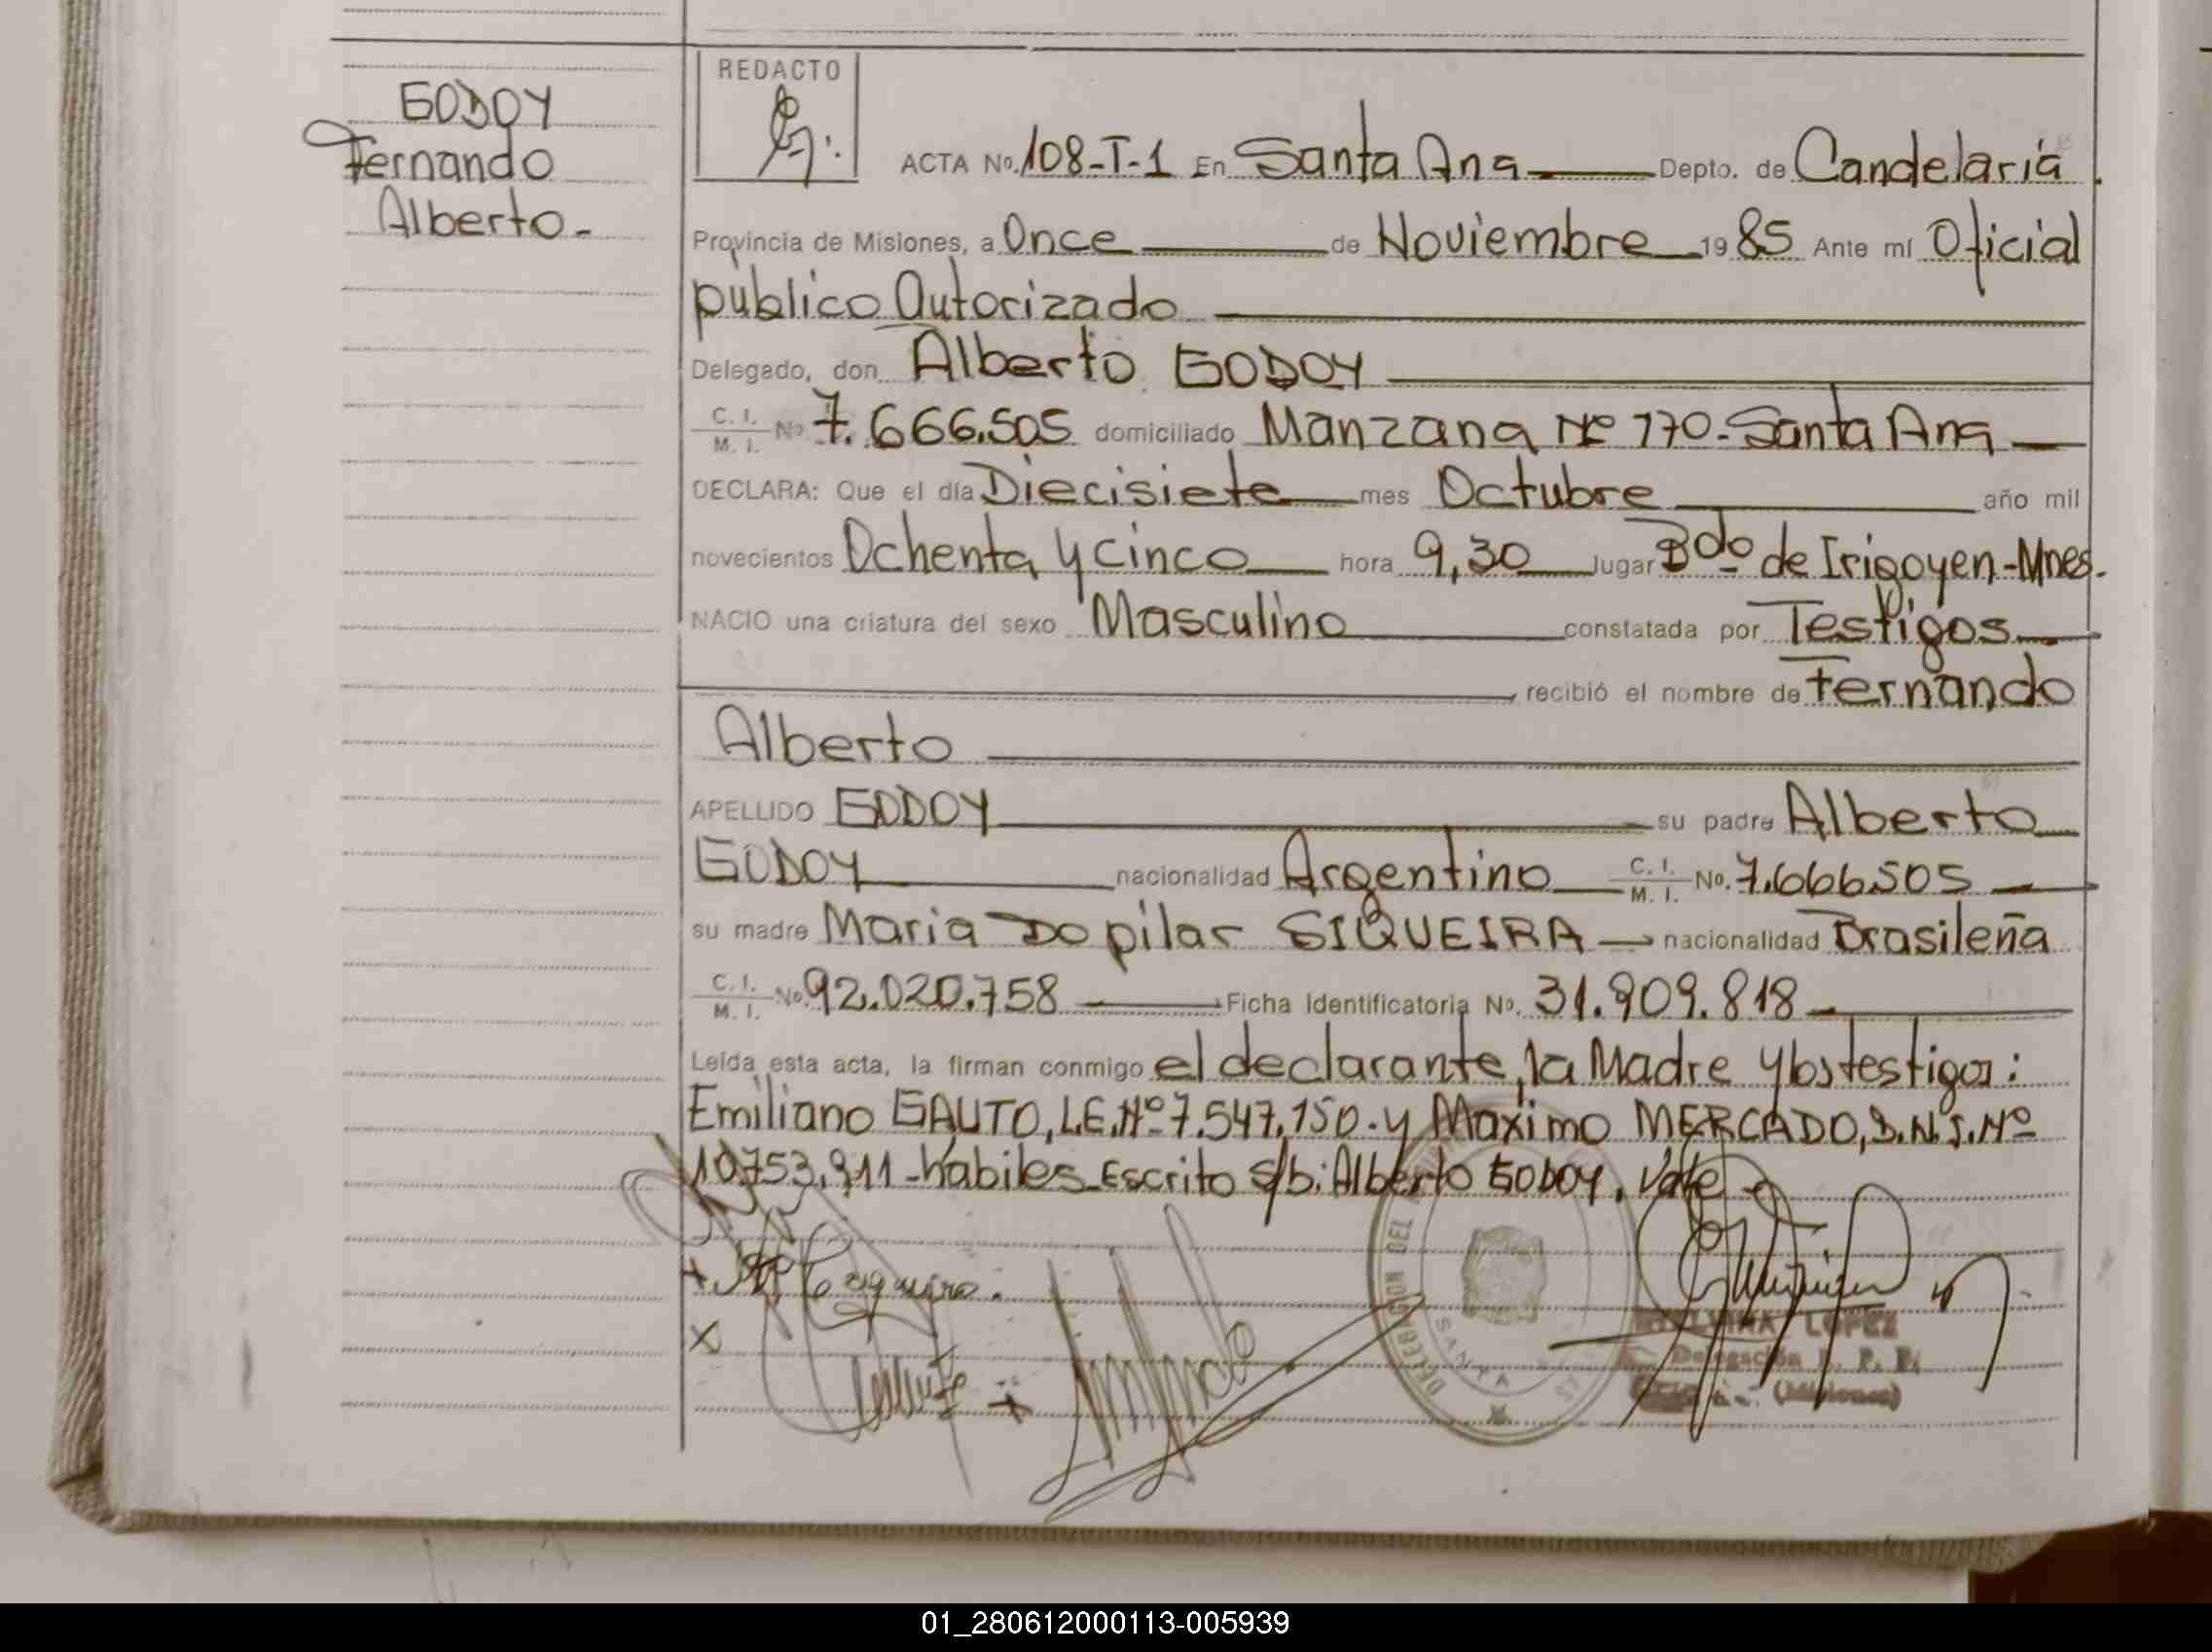 GODOY
Fernando
Alberto.-
REDACTO
ACTA No. 108-T-1 En Santa Ana Depto. de Candelaria
Provincia de Misiones, a Once de Noviembre 1985 Ante mí Oficial
público Autorizado
Delegado, don Alberto GODOY
C. I. M. I. No. 7.666.505 domiciliado Manzana Nº 170-Santa Ana
DECLARA: Que el día Diecisiete mes Octubre año mil
novecientos Ochenta y cinco hora 9,30 Jugar Bdo de Irigoyen-Mnes.
NACIO una criatura del sexo Masculino constatada por Testigos
recibió el nombre de Fernando
Alberto
APELLIDO GODOY su padre Alberto
GODOY nacionalidad Argentino C. I. M. I. No. 7.666.505
su madre Maria Do pilar SIQUEIRA nacionalidad Brasileña
C. I. M. I. No. 92.020.758 Ficha Identificatoria No. 31.909.818
Leída esta acta, la firman conmigo el declarante, la Madre y los testigos:
Emiliano GAUTO, L.E.Nº 7.547.150.y Maximo MERCADO, D.N.I.Nº
10.753.911-hábiles-Escrito s/b: Alberto GODOY. Vale
DELEGACION DEL
SANTA
LOPEZ
Delegación R. P. P.
(Misiones)
01_280612000113-005939